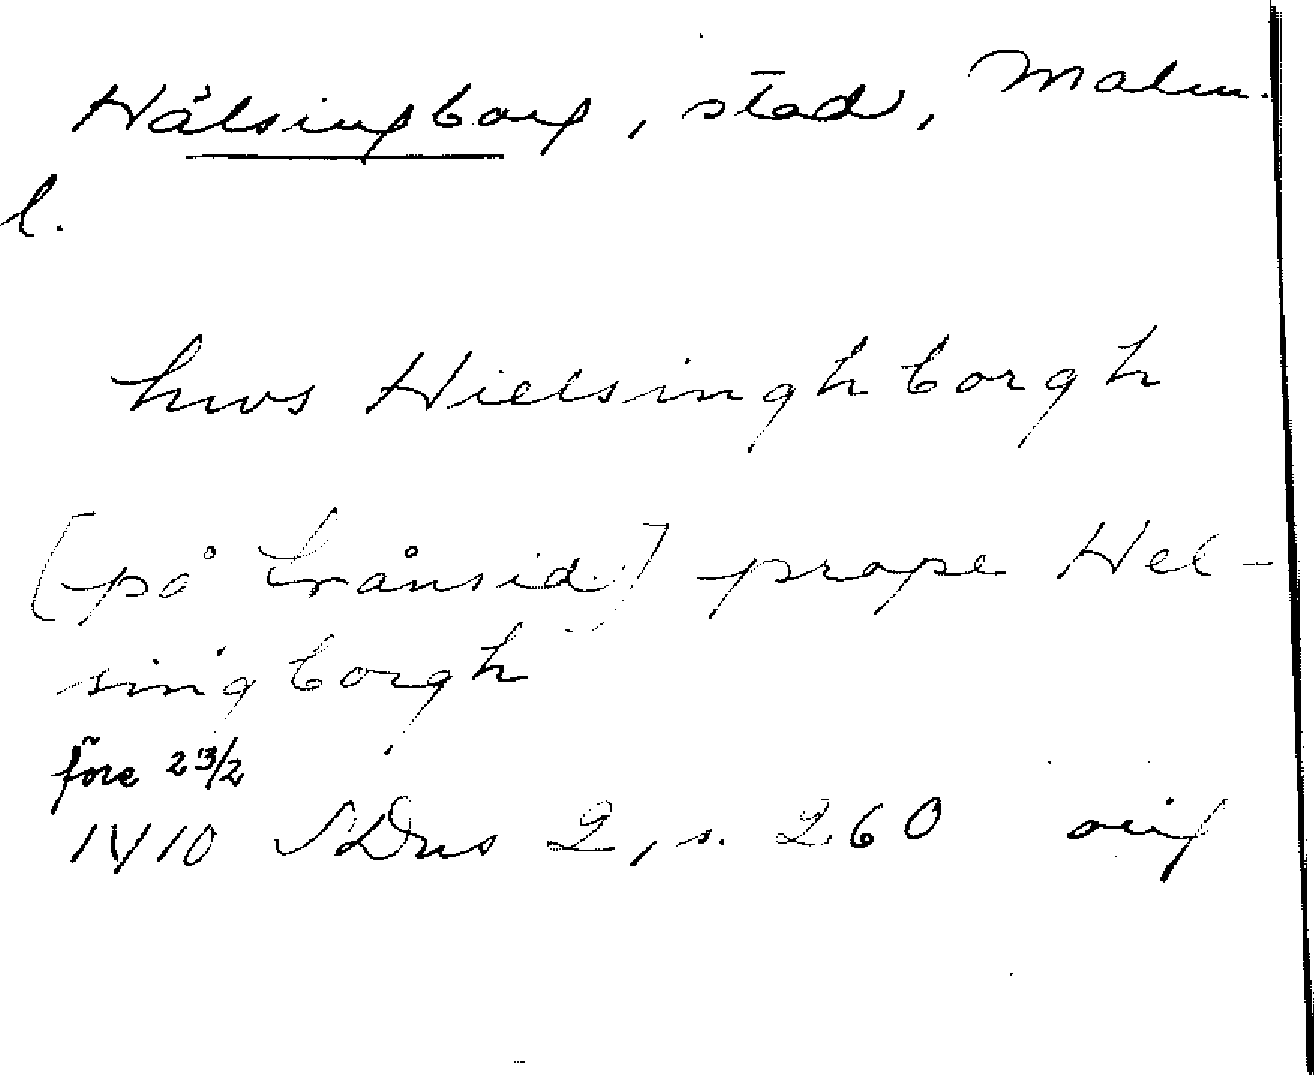 Hälsingborg, stad, Malm.
l.
hws Hielsinghborgh
[på frånsid.] prope Hel-
singborgh
före 23/2
1410 SDns 2, s. 260 orig